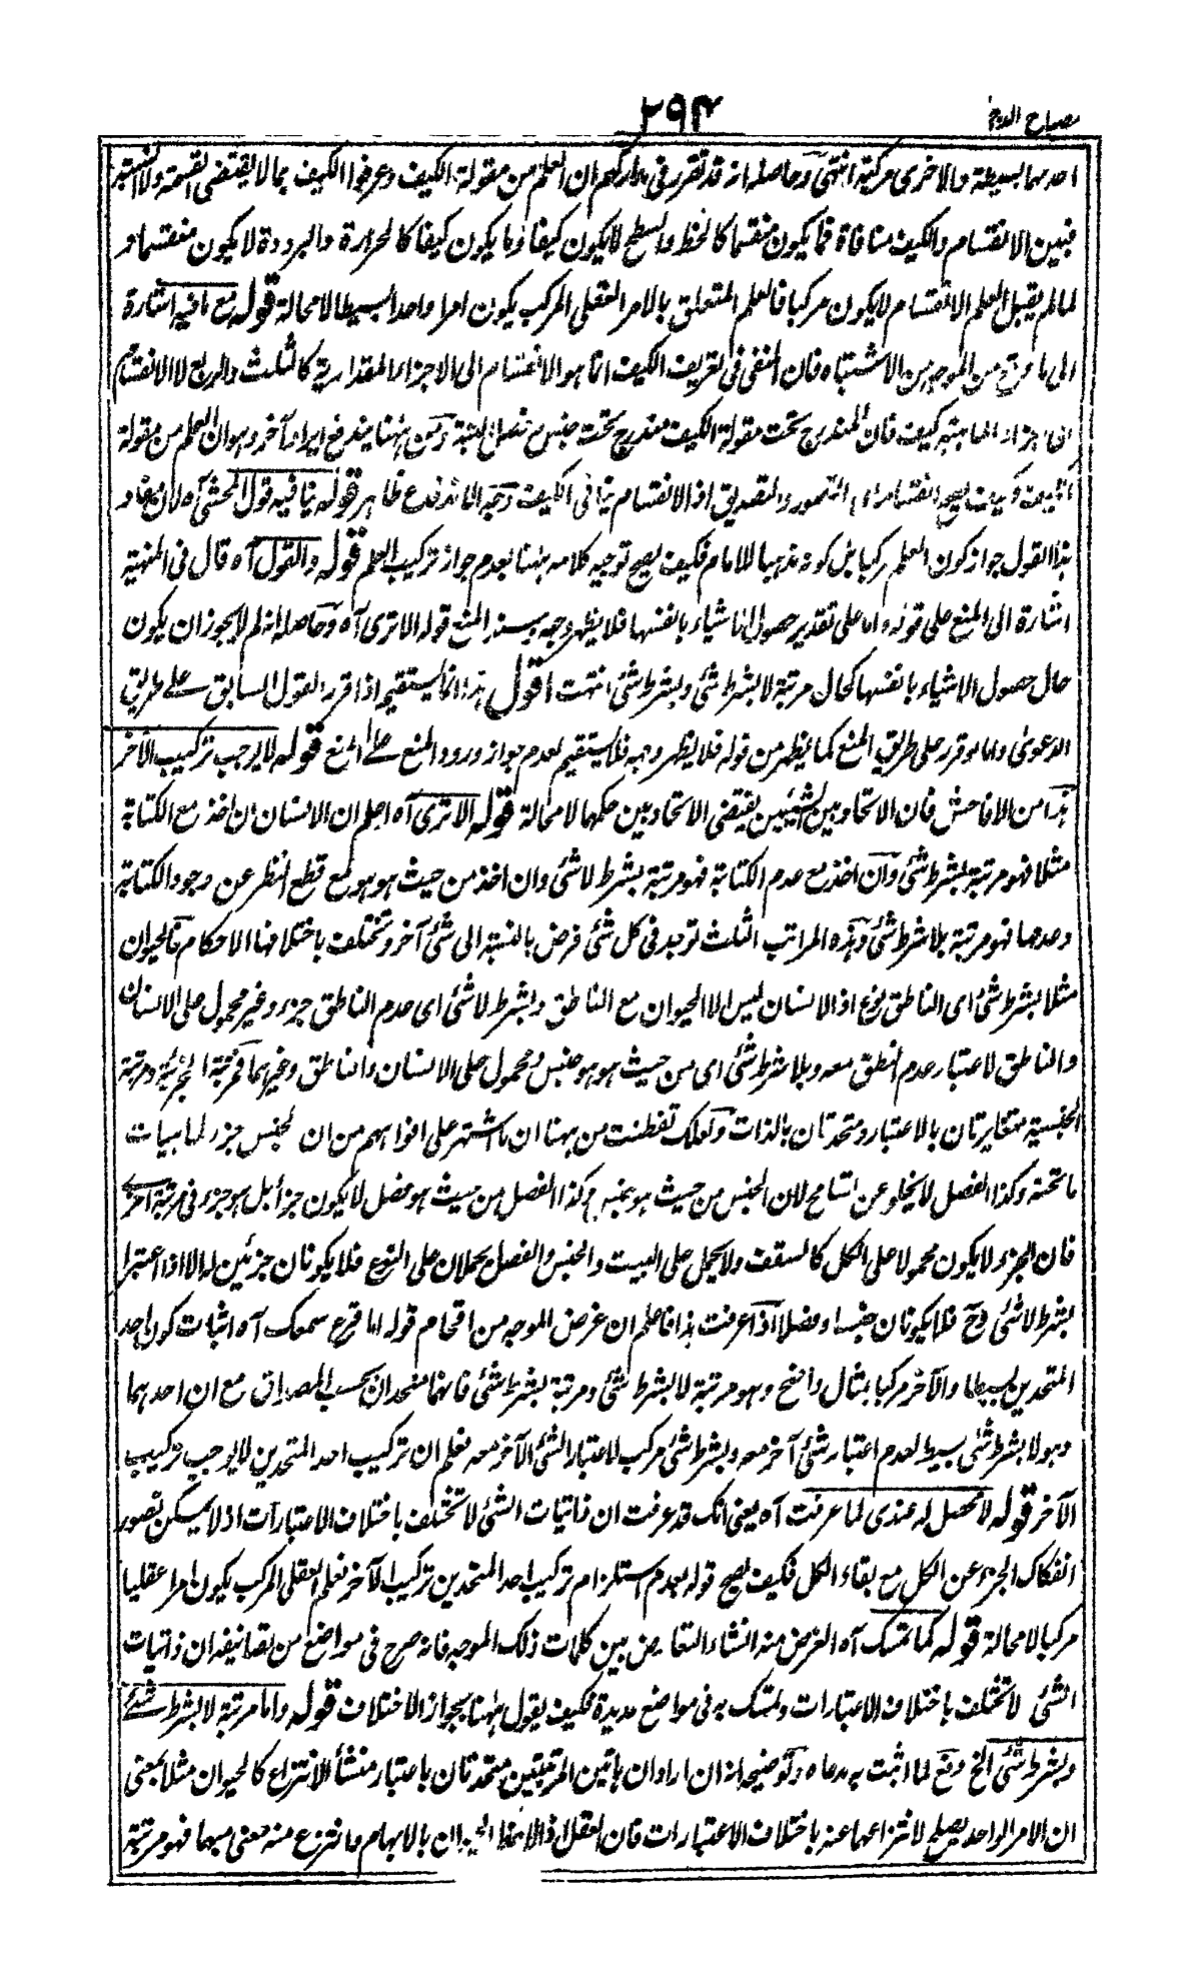 مصباح الدجى
٢٩٤
احدهما بسيطة والاخرى مركبة انتهى وحاصله انه قد تقرر فى مداركهم ان العلم من مقولة الكيف وعرفوا الكيف بما لا يقتضى القسمة ولا النسبة
فبين الانقسام والكيف منافاة فما يكون منقسما كالخط والسطح لا يكون كيفا وما يكون كيفا كالحرارة والبرودة لا يكون منقسما و
لما لم يقبل العلم الانقسام لا يكون مركبا فالعلم المتعلق بالامر العقلى المركب يكون امرا واحدا بسيطا لا محالة قوله مع ما فيه اشارة
الى ما وقع من الموجه من الاشتباه فان المنفى فى تعريف الكيف انما هو الانقسام الى الاجزاء المقدارية كالثلث والربع لا الانقسام
الى اجزاء الماهية كيف فان المندرج تحت مقولة الكيف مندرج تحت جنس مع فصل البتة ومن ههنا يندفع ايراد آخر وهو ان العلم من مقولة
الكيف وكيف يصح انقسامه الى التصور والتصديق اذ الانقسام ينافى الكيف وجه الاندفاع ظاهر قوله ينافيه قول المحشى آه لان مفاد
هذا القول جواز كون العلم مركبا بل كونه مذهبا للامام فكيف يصح توجيه كلامه ههنا بعدم جواز تركيب العلم قوله والقول آه قال فى المنهية
اشارة الى المنع على قوله واما على تقدير حصول الاشياء بانفسها فلا يظهر وجهه وسند المنع قوله الا ترى آه وحاصله انه لم لا يجوز ان يكون
حال حصول الاشياء بانفسها كحال مرتبة لا بشرط شئ وبشرط شئ انتهت اقول هذا انما يستقيم اذا قرر القول السابق على طريق
الدعوى واما لو قرر على طريق المنع كما يظهر من قوله فلا يظهر وجهه فلا يستقيم لعدم جواز ورود المنع على المنع قوله لا يوجب تركيب الآخر
هذا من الافاحش فان الاتحاد بين الشيئين يقتضى الاتحاد بين حكمهما لا محالة قوله الا ترى آه اعلم ان الانسان ان اخذ مع الكتابة
مثلا فهو مرتبة بشرط شئ وان اخذ مع عدم الكتابة فهو مرتبة بشرط لا شئ وان اخذ من حيث هو هو مع قطع النظر عن وجود الكتابة
وعدمها فهو مرتبة بلا شرط شئ وهذه المراتب الثلث توجد فى كل شئ فرض بالنسبة الى شئ آخر وتختلف باختلافها الاحكام فالحيوان
مثلا بشرط شئ اى الناطق نوع اذ الانسان ليس الا الحيوان مع الناطق وبشرط لا شئ اى عدم الناطق جزء وغير محمول على الانسان
والناطق لاعتبار عدم النطق معه وبلا شرط شئ اى من حيث هو هو جنس ومحمول على الانسان والناطق وغيرهما فمرتبة الجزئية ومرتبة
الجنسية متغايرتان بالاعتبار ومتحدتان بالذات ولعلك تفطنت من ههنا ان ما اشتهر على افواههم من ان الجنس جزء لماهيات
ما تحته وكذا الفصل لا يخلو عن تسامح لان الجنس من حيث هو جنس وكذا الفصل من حيث هو فصل لا يكون جزأ بل هو جزء فى مرتبة اخرى
فان الجزء لا يكون محمولا على الكل كالسقف ولا يحمل على البيت والجنس والفصل يحملان على النوع فلا يكونان جزئين له الا اذا اعتبرا
بشرط لا شئ وح فلا يكونان جنسا وفصلا اذا عرفت هذا فاعلم ان غرض الموجه من اقحام قوله اما قرع سمعك آه اثبات كون احد
المتحدين بسيطا والآخر مركبا بمثال واضح وهو مرتبة لا بشرط شئ ومرتبة بشرط شئ فانهما متحدان بحسب المصداق مع ان احدهما
وهو لا بشرط شئ بسيط لعدم اعتبار شئ آخر معه وبشرط شئ مركب لاعتبار الشئ الآخر معه فعلم ان تركيب احد المتحدين لا يوجب تركيب
الآخر قوله لا محصل له عندى لما عرفت آه يعنى انك قد عرفت ان ذاتيات الشئ لا تختلف باختلاف الاعتبارات اذ لا يمكن تصور
انفكاك الجزء عن الكل مع بقاء الكل فكيف يصح قوله بعدم استلزام تركيب احد المتحدين تركيب الآخر فعلم العقلى المركب يكون امرا عقليا
مركبا لا محالة قوله كما تمسك آه الغرض منه انشاء التعارض بين كلمات ذلك الموجه فانه صرح فى مواضع من تصانيفه ان ذاتيات
الشئ لا تختلف باختلاف الاعتبارات وتمسك به فى مواضع عديدة فكيف يقول ههنا بجواز الاختلاف قوله واما مرتبة لا بشرط شئ
وبشرط شئ الخ دفع لما اثبت به مدعاه وتوضيحه انه ان اراد ان هاتين المرتبتين متحدتان باعتبار منشأ الانتزاع كالحيوان مثلا بمعنى
ان الامر الواحد يصلح لانتزاعهما عنه باختلاف الاعتبارات فان العقل اذا لاحظ الحيوان بالابهام وانتزع منه معنى مبهما فهو مرتبة